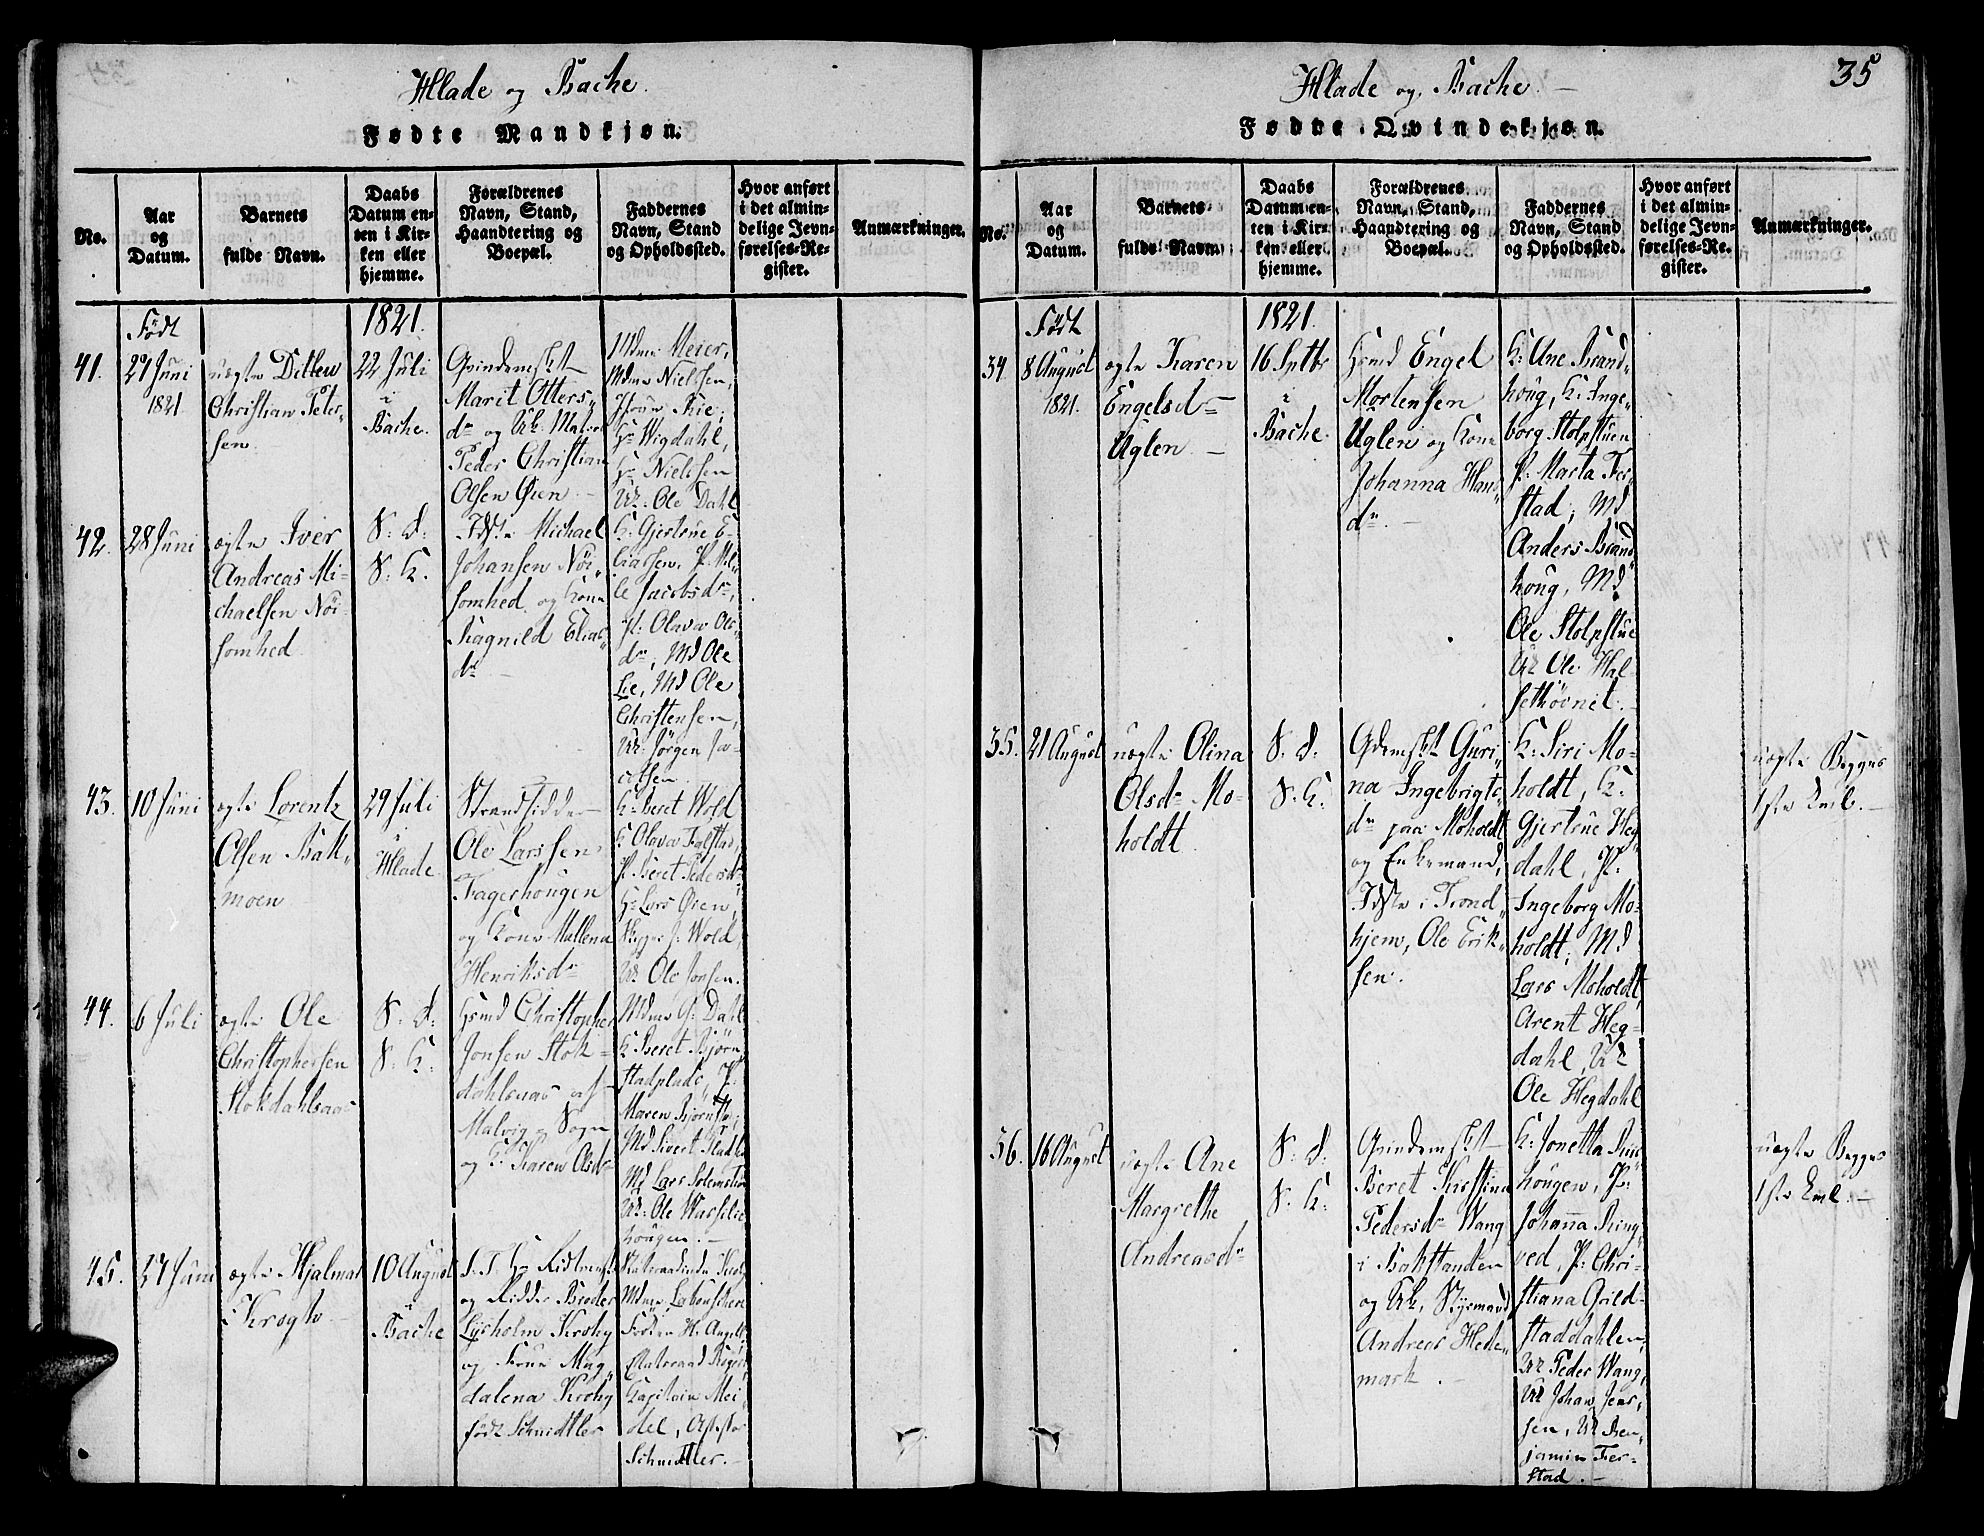 Hlade og Bache.
Fødte Mandkjøn.
No.
Aar
og
Datum.
Barnets
fulde Navn.
Daabs
Datum en-
ten i Kir-
ken eller
hjemme.
Forældrenes
Navn, Stand,
Haandtering og
Boepæl.
Faddernes
Navn, Stand
og Opholdssted.
Hvor anført
i det almin-
delige Jevn-
førelses-Re-
gister.
Anmærkninger.
Född
1821.
41.
27 Juni
1821.
uægte Ditlew
Christian Peter-
sen.
22 Juli
i
Bache.
Qvindemskt
Marit Otters-
dr og Uk. Matros
Peder Christian
Olsen Øien.
Mdme Meier,
Mdme Nielssen,
Jfrue Bie,
Hr Wigdahl,
Hr Nielssen
Uk: Ole Dahl
42.
28 Juni
ægte Iver
Andreas Mi-
chaelsen Nöi-
somhed.
S. d:
S. K.
Idste Michael
Johansen Nöi-
somhed og Kone
Ragnild Elias-
dr
K: Gjertrue E-
liassen, P. Mil-
le Jacobsdr,
P: Olava Ols-
dr, Md Ole
Lie, Md Ole
Christensen,
Uk: Jörgen Ja-
cobsen.
43.
10 Juni
ægte Lorentz
Olsen Bak-
moen
29 Juli
i
Hlade
Strandsidder
Ole Larssen
Fagerhougen
og Kone Mallena
Henriksdr
K: Beret Wold
K Olava Falstad,
P. Beret Pedersdr
Hr Lars Øien,
J: Wold,
Uk Ole Jonsen.
44.
6 Juli
ægte Ole
Christophersen
Stokdahlsaas
S: d:
S. K:
Hsmd Christopher
Jonsen Stok-
dahlsaas af
Malvig Sogn
og K. Karen Olsdr
Mdme G: Dahl
K Beret Björn-
stadplads, P:
Maren Björnsta,
Md Sivert Stadt
Md Lars Solemslie
Uk: Ole Wassilie-
hougen.
45.
27 Juni
ægte Hjalmar
Krogh
10 August
i
Bache
S. T. Hr Ridtmest.
og Ridder Broder
Lysholm Krohg
og Frue Mag-
dalena Krohg
föd Schmidtler
Statsraadinde Krohg
Mdme Labouschere
H. Angell
Etatsraad Rogert
Kapitain Mei-
del, Assessor
Schmidtler.
35
Hlade og Bache.
Fødte Qvindekjøn.
No.
Aar
og
Datum.
Barnets
fulde Navn.
Daabs
Datum en-
ten i Kir-
ken eller
hjemme.
Forældrenes
Navn, Stand,
Haandtering og
Boepæl.
Faddernes
Navn, Stand
og Opholdssted.
Hvor anført
i det almin-
delige Jevn-
førelses-Re-
gister.
Anmærkninger.
Född
1821.
34.
8 August
1821.
ægte Karen
Engelsdr
Uglen.
16 Septbr
i
Bache.
Hsmd Engel
Mortensen
Uglen og Kone
Johanna Han-
dr.
K: Ane Brand-
houg, K: Inge-
borg Stolpstuen
P. Marta Fer-
stad, Md
Anders Brand-
houg, Md
Ole Stolpstue
Uk Ole Hal-
sethövnet.
35.
21 August
uægte Olina
Olsdr Mo-
holdt.
S. d:
S. K:
Qdemskt Guri-
na Ingebrigts-
dr paa Moholdt
og Enkemand,
Idste i Trond-
hjem, Ole Erik-
sen.
K: Siri Mo-
holdt, K.
Gjertrue Heg-
dahl, P:
Ingeborg Mo-
holdt, Md
Lars Moholdt,
Arent Heg-
dahl, Uk
Ole Hegdahl
uægte Begges
1ste Leil.
36.
16 August
uægte Ane
Margrethe
Andreasdr
S. d:
S. K:
Qvindemskt
Beret Kirstina
Pedersdr Wang
i Bakstranden
og Uk, Styrmand
Andreas Hede-
mark.
K: Jonetta Rus-
hougen, P:
Johanna Ring-
ved, P: Chri-
stiana Grild-
staddahlen,
Uk Peder Wang,
Uk Johan Jens-
sen, Uk Ben-
jamin Fer-
stad.
uægte Begges
1ste Leil.